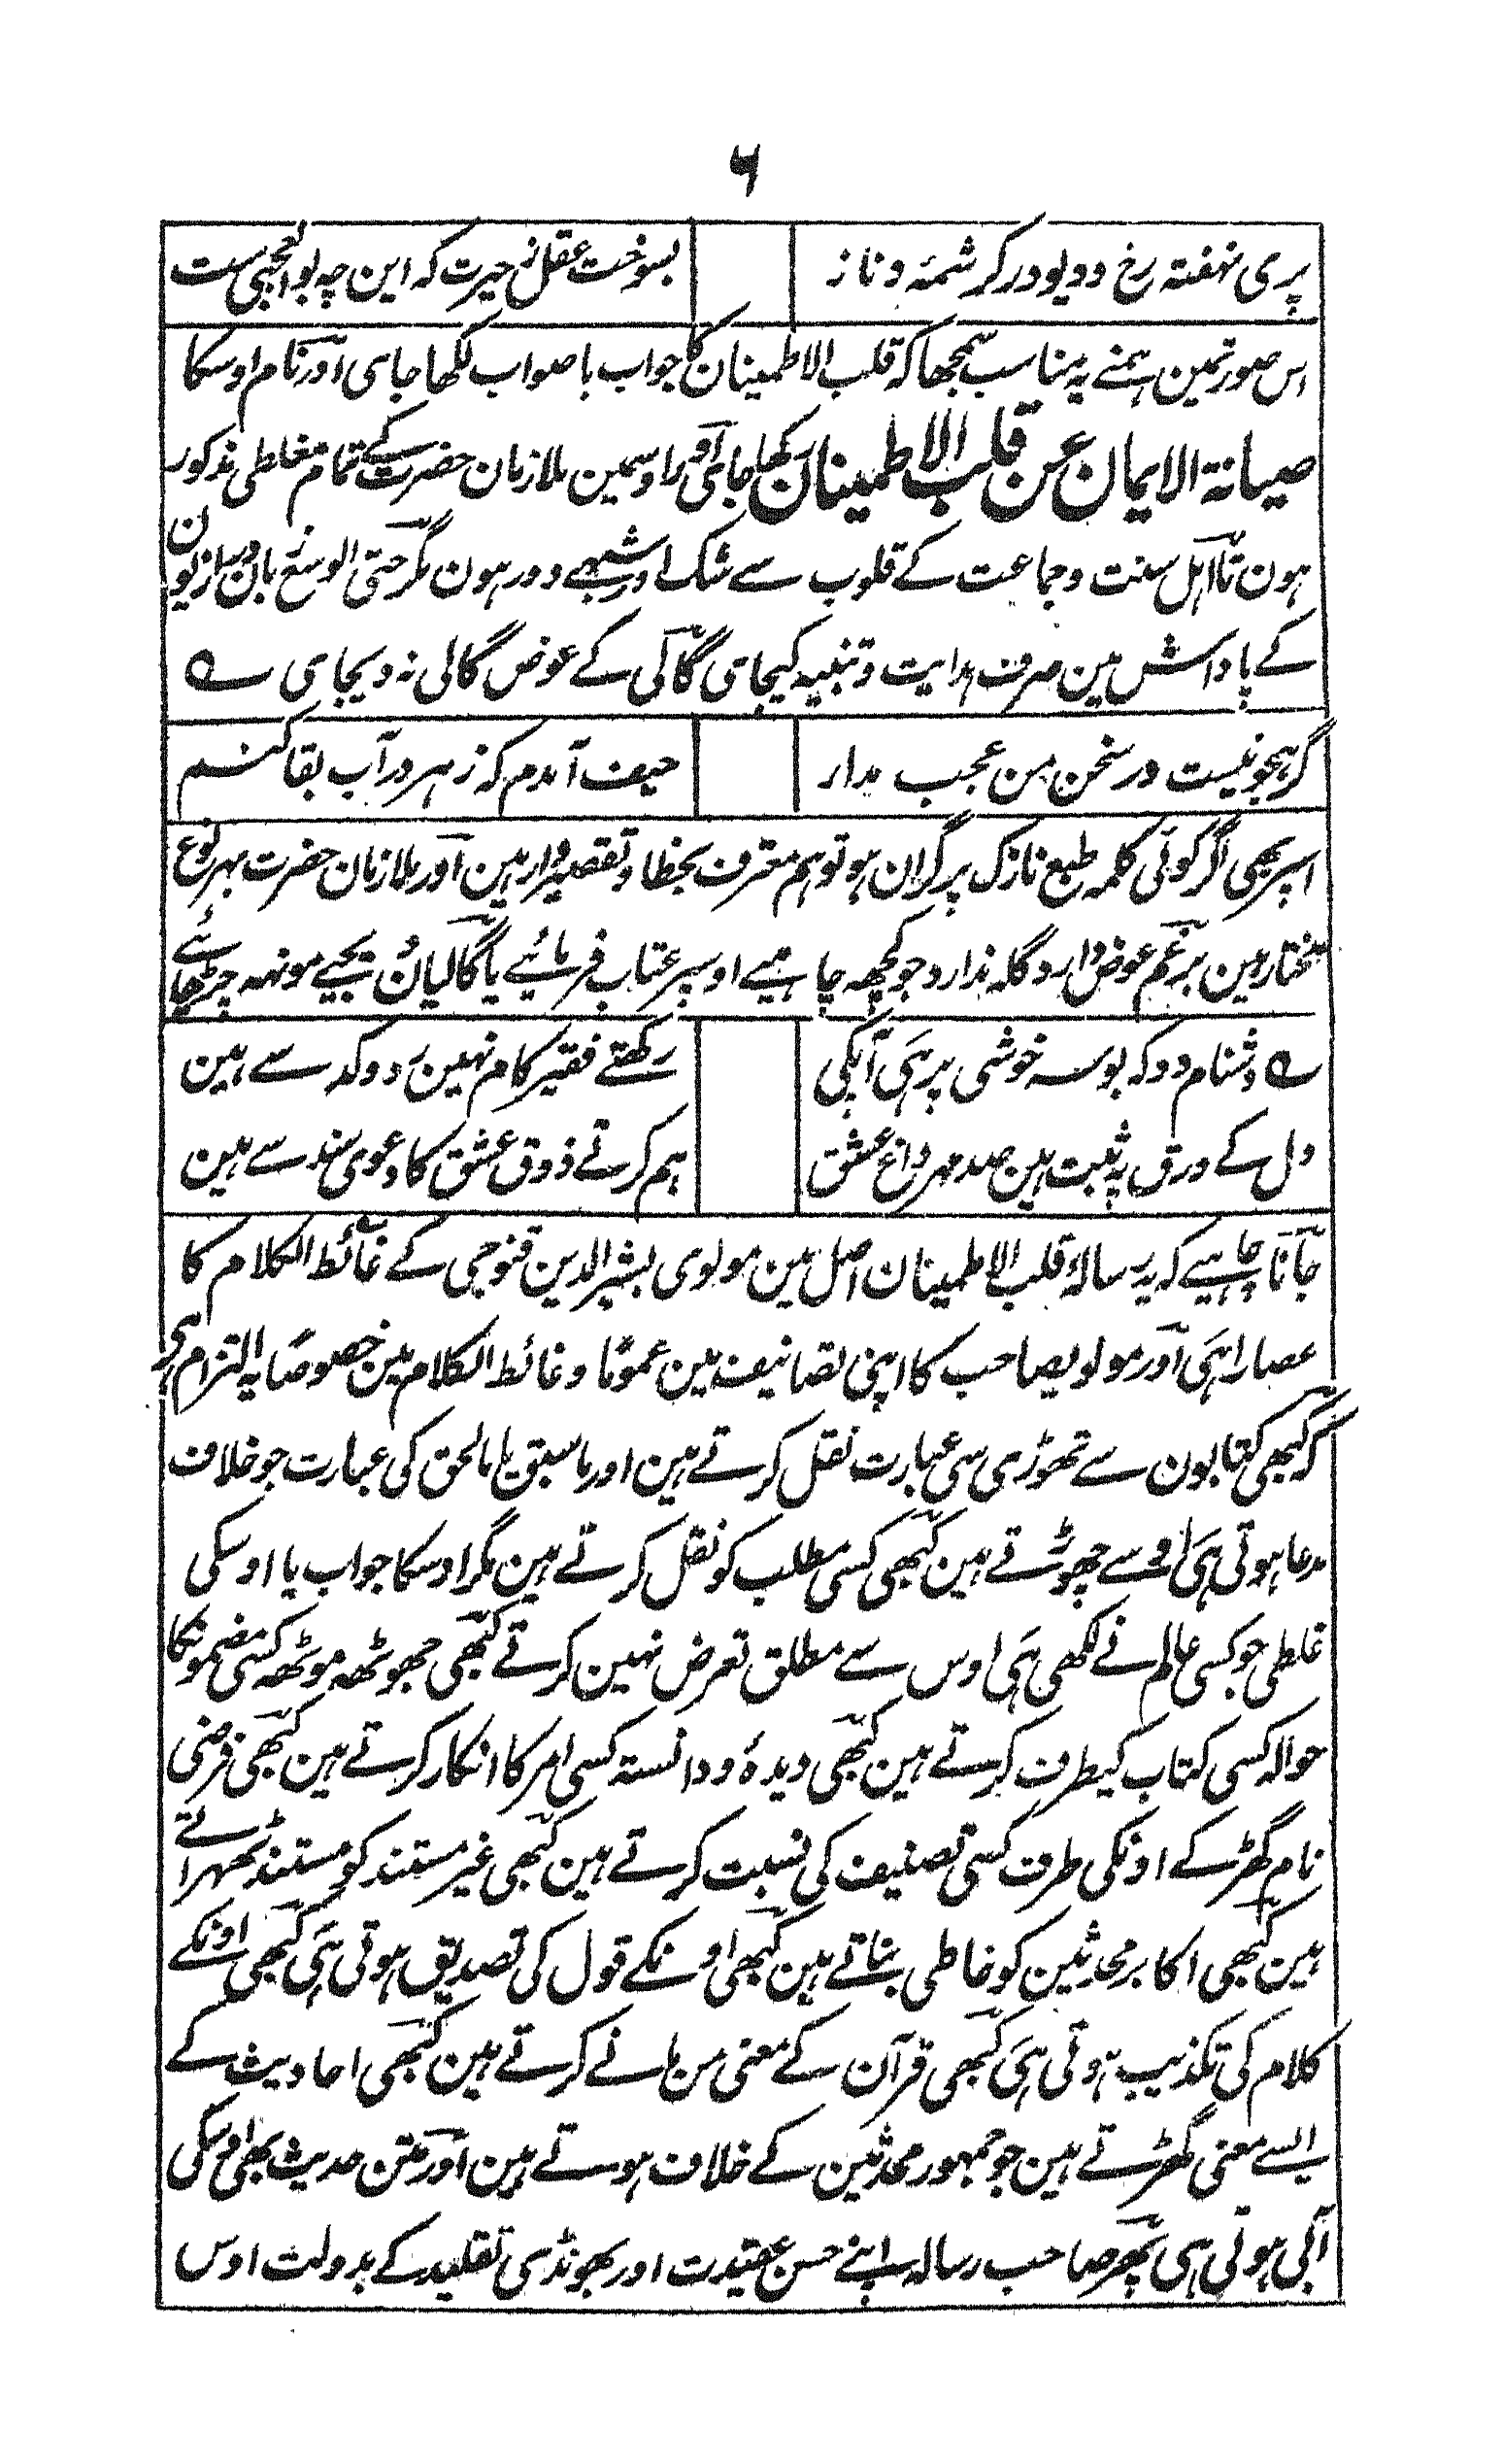 ۶
پری نہفتہ رخ و دیو در کرشمۂ و ناز بسوخت عقل ز حیرت کہ این چہ بوالعجبی ست
اس صورتمین ہمنے یہ مناسب سمجھا کہ قلب الاطمینان کا جواب باصواب لکھا جای اور نام اوسکا
صیانۃ الایمان عن قلب الاطمینان رکھا جای اور اوسمین ملازمان حضرت کے تمام مغلطی مذکور
ہون تا اہل سنت وجماعت کے قلوب سے شک اور شبہے دور ہون مگر حتی الوسع زبان درازیون
کے پاداش مین صرف ہدایت و تنبیہ کیجای گی گالی کے عوض گالی نہ دیجای ے
گر ہجو نیست در سخن من عجب مدار حیف آمدم کہ زہر در آب بقا کنم
اسپر بھی اگر کوئی کلمہ طبع نازک پر گران ہو تو ہم معترف بخطا و تقصیروار ہین اور ملازمان حضرت بہر نوع
مختار ہین برغم عوض دارد گلہ ندارد جو کچھہ چاہیے اوسپر عتاب فرمائیے یا گالیان دیجیے مونہہ چڑھائے
ے دشنام دو کہ بوسہ خوشی پر ہی آپکی رکھتے فقیر کام نہین رد و کد سے ہین
دل کے ورق پہ ثبت ہین صد مہر داغ عشق ہم کرتے ذوق عشق کا دعوی سند سے ہین
جاننا چاہیے کہ یہ رسالۂ قلب الاطمینان اصل مین مولوی بشیر الدین قنوجی کے غائط الکلام کا
عصارا ہی اور مولویصاحب کا اپنی تصانیف مین عمومًا و غائط الکلام مین خصوصًا یہ التزام ہی
کہ کبھی کتابون سے تھوڑی سی عبارت نقل کرتے ہین اور ماسبق یا مالحق کی عبارت جو خلاف
مدعا ہوتی ہی اوسے چھوڑتے ہین کبھی کسی مطلب کو نقل کرتے ہین مگر اوسکا جواب یا اوسکی
غلطی جو کسی عالم نے لکھی ہی اوس سے مطلق تعرض نہین کرتے کبھی جھوٹھ موٹھ کسی مضمونکا
حوالہ کسی کتاب کیطرف کرتے ہین کبھی دیدہ و دانستہ کسی امر کا انکار کرتے ہین کبھی فرضی
نام گھڑ کے اونکی طرف کسی تصنیف کی نسبت کرتے ہین کبھی غیر مستند کو مستند ٹھہراتے
ہین کبھی اکابر محدثین کو خاطی بناتے ہین کبھی اونکے قول کی تصدیق ہوتی ہی کبھی اونکے
کلام کی تکذیب ہوتی ہی کبھی قرآن کے معنی من مانے کرتے ہین کبھی احادیث کے
ایسے معنی گھڑتے ہین جو جمہور محدثین کے خلاف ہوتے ہین اور متن حدیث بھی اوسکی
آبی ہوتی ہی پھر صاحب رسالہ اپنے حسن عقیدت اور بھونڈی تقلید کے بدولت اوس